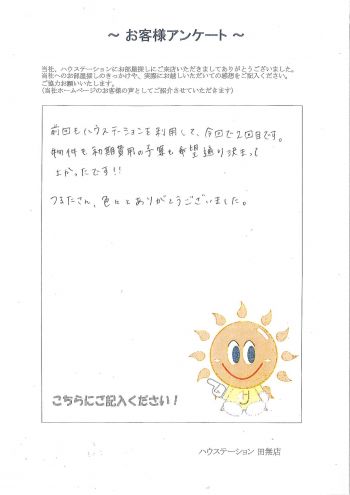 ～ お客様アンケート ～
当社、ハウステーションにお部屋探しにご来店いただきましてありがとうございました。
当社へのお部屋探しのきっかけや、実際にお越しいただいての感想をご記入ください。
ご協力お願いいたします。
(当社ホームページのお客様の声としてご紹介させていただきます)
前回もハウステーションを利用して、今回で2回目です。
物件も初期費用の予算も希望通り決まって
よかったです!!
つるたさん、色々とありがとうございました。
こちらにご記入ください！
ハウステーション 田無店